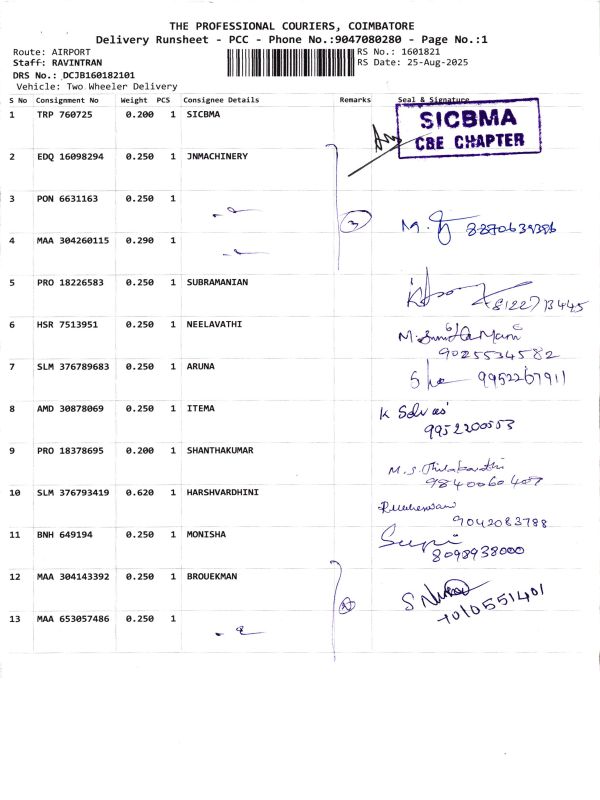 THE PROFESSIONAL COURIERS, COIMBATORE
Delivery Runsheet - PCC - Phone No.:9047080280 - Page No.:1
Route: AIRPORT RS No.: 1601821
Staff: RAVINTRAN RS Date: 25-Aug-2025
DRS No.: DCJB160182101
Vehicle: Two Wheeler Delivery
S No Consignment No Weight PCS Consignee Details Remarks Seal & Signature
1 TRP 760725 0.200 1 SICBMA
SICBMA
CBE CHAPTER
2 EDQ 16098294 0.250 1 JNMACHINERY
3 PON 6631163 0.250 1
3 M. 8870639386
4 MAA 304260115 0.290 1
5 PRO 18226583 0.250 1 SUBRAMANIAN
8122713445
6 HSR 7513951 0.250 1 NEELAVATHI
9025534582
7 SLM 376789683 0.250 1 ARUNA
9952267911
8 AMD 30878069 0.250 1 ITEMA
K Selvas
9952200553
9 PRO 18378695 0.200 1 SHANTHAKUMAR
M.S.
9840060407
10 SLM 376793419 0.620 1 HARSHVARDHINI
9042083788
11 BNH 649194 0.250 1 MONISHA
8098938000
12 MAA 304143392 0.250 1 BROUEKMAN
7010551401
13 MAA 653057486 0.250 1